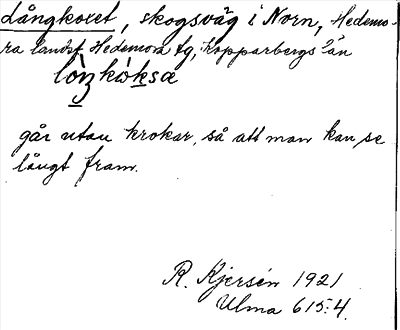 Långkoxet, skogsväg i Norn, Hedemo-
ra landsf Hedemora tg, Kopparbergs län
går utan krokar, så att man kan se
långt fram.
R. Kjersén 1921
Ulma 615:4.